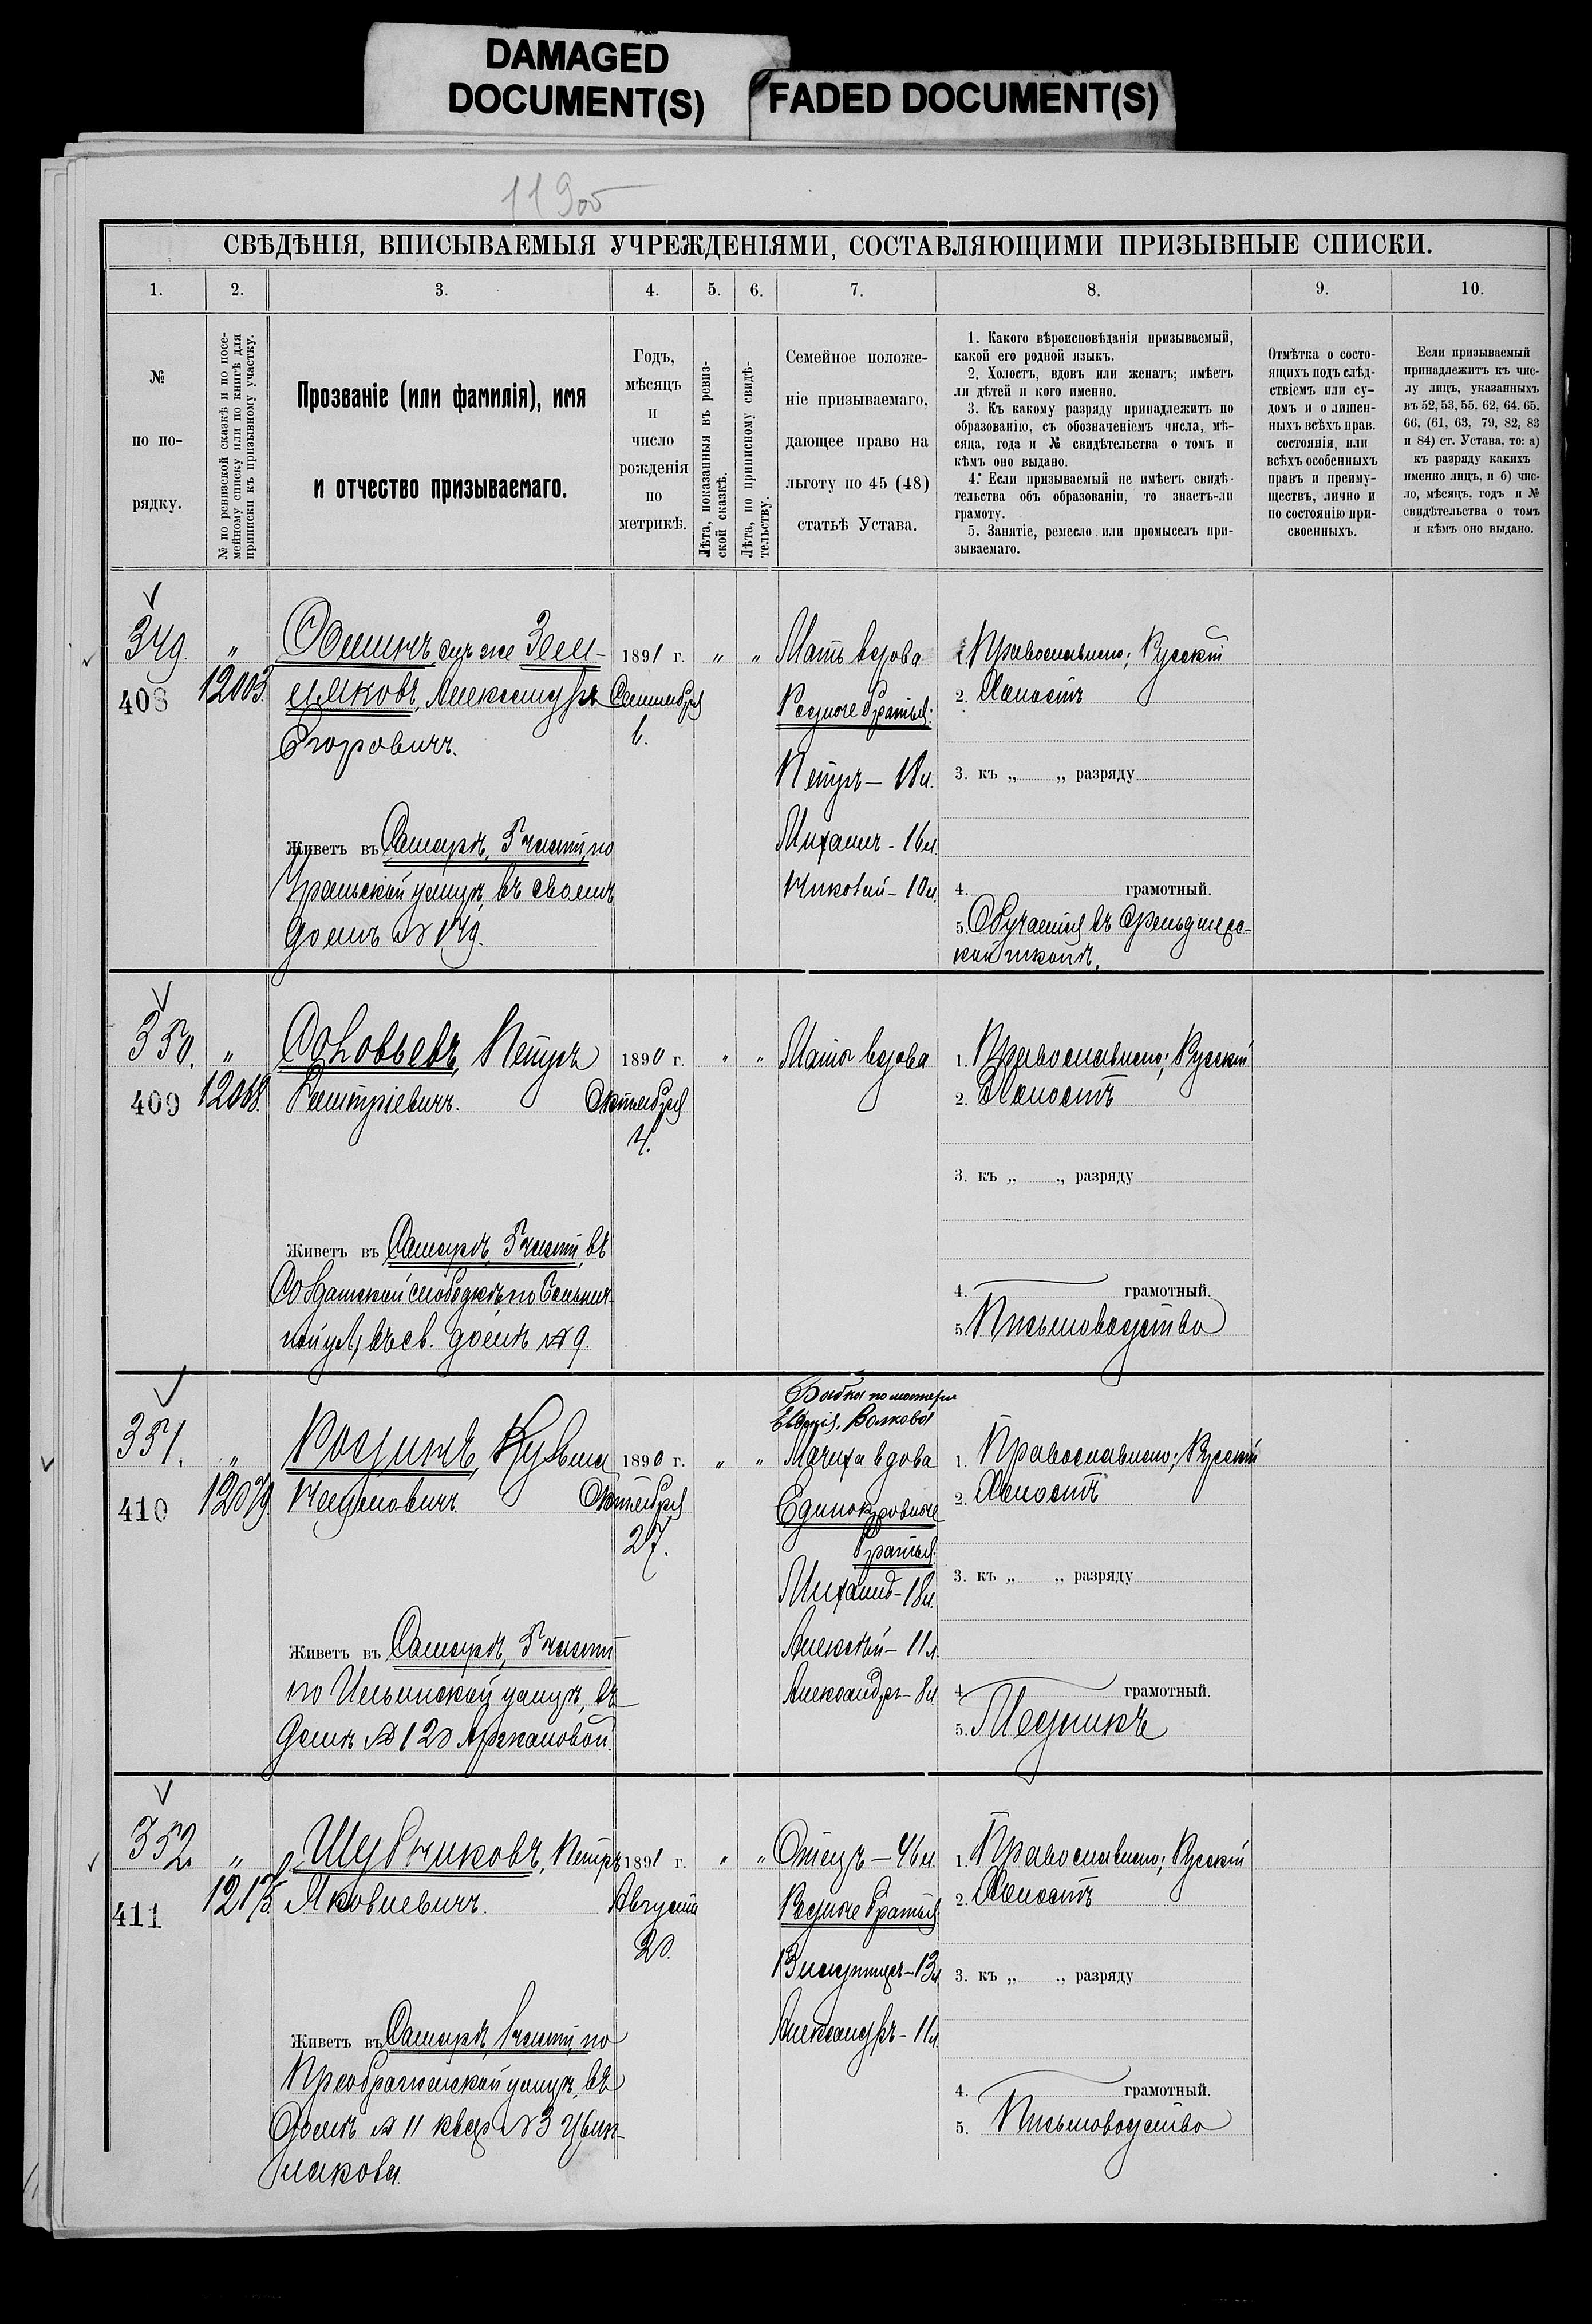 DAMAGED
DOCUMENT(S)
FADED DOCUMENT(S)
СВѢДѢНІЯ, ВПИСЫВАЕМЫЯ УЧРЕЖДЕНІЯМИ, СОСТАВЛЯЮЩИМИ ПРИЗЫВНЫЕ СПИСКИ.
1. 2. 3. 4. 5. 6. 7. 8. 9. 10.
№
по по-
рядку.
№ по ревизской сказкѣ и по посе-
мейному списку или по книгѣ для
приписки къ призывному участку.
Прозваніе (или фамилія), имя
и отчество призываемаго.
Годъ,
мѣсяцъ
и
число
рожденія
по
метрикѣ.
Лѣта, показанныя въ ревиз-
ской сказкѣ.
Лѣта, по приписному свидѣ-
тельству.
Семейное положе-
ніе призываемаго,
дающее право на
льготу по 45 (48)
статьѣ Устава.
1. Какого вѣроисповѣданія призываемый,
какой его родной языкъ.
2. Холостъ, вдовъ или женатъ; имѣетъ
ли дѣтей и кого именно.
3. Къ какому разряду принадлежитъ по
образованію, съ обозначеніемъ числа, мѣ-
сяца, года и № свидѣтельства о томъ и
кѣмъ оно выдано.
4. Если призываемый не имѣетъ свидѣ-
тельства объ образованіи, то знаетъ-ли
грамоту.
5. Занятіе, ремесло или промыселъ при-
зываемаго.
Отмѣтка о состо-
ящихъ подъ слѣд-
ствіемъ или су-
домъ и о лишен-
ныхъ всѣхъ прав.
состоянія, или
всѣхъ особенныхъ
правъ и преиму-
ществъ, лично и
по состоянію при-
своенныхъ.
Если призываемый
принадлежитъ къ чис-
лу лицъ, указанныхъ
въ 52, 53, 55, 62, 64, 65,
66, (61, 63, 79, 82, 83
и 84) ст. Устава, то: а)
къ разряду какихъ
именно лицъ, и б) чис-
ло, мѣсяцъ, годъ и №
свидѣтельства о томъ
и кѣмъ оно выдано.
349.
408
"
12003.
онъ же Зем-
ляковъ, Александръ
Егоровичъ.
Живетъ въ Самарѣ, 5 части, по
Уральской улицѣ, въ своемъ
домѣ № 179.
1891 г.
Сентября
6.
" "
Мать вдова
Родные братья:
Петръ – 18 л.
Михаилъ – 16 л.
Николай – 10 л.
1. Православнаго; Русскій
2. Холостъ
3. къ „ „ разряду
4. грамотный.
5. Обучается въ фельдшерс-
кой школѣ.
350.
409
"
12068.
Соловьевъ, Петръ
Дмитріевичъ.
Живетъ въ Самарѣ, 5 части, въ
Солдатской слободкѣ, по Больнич-
ной ул., въ св. домѣ № 9.
1890 г.
Октября
4.
" "
Мать вдова
1. Православнаго; Русскій
2. Холостъ
3. къ „ „ разряду
4. грамотный.
5. Письмоводство
351.
410
"
12079.
Родинъ, Кузьма
Наумовичъ.
Живетъ въ Самарѣ, 5 части
по Ильинской улицѣ, въ
домѣ № 120 Аржановой.
1890 г.
Октября
27.
" "
Бабка по матери
Волкова
Мачиха вдова
Единокровные
братья:
Михаилъ – 18 л.
Алексѣй – 11 л.
Александръ – 8 л.
1. Православнаго; Русскій
2. Холостъ
3. къ „ „ разряду
4. грамотный.
5. Медникъ
352.
411
"
12175.
Шубниковъ, Петръ
Яковлевичъ.
Живетъ въ Самарѣ, 1 части, по
Преображенской улицѣ, въ
домѣ № 11 квар. № 3
1891 г.
Августа
20.
" "
Отецъ – 46 л.
Родные братья:
Владиміръ – 13 л.
Александръ – 11 л.
1. Православнаго; Русскій
2. Холостъ
3. къ „ „ разряду
4. грамотный.
5. Письмоводство